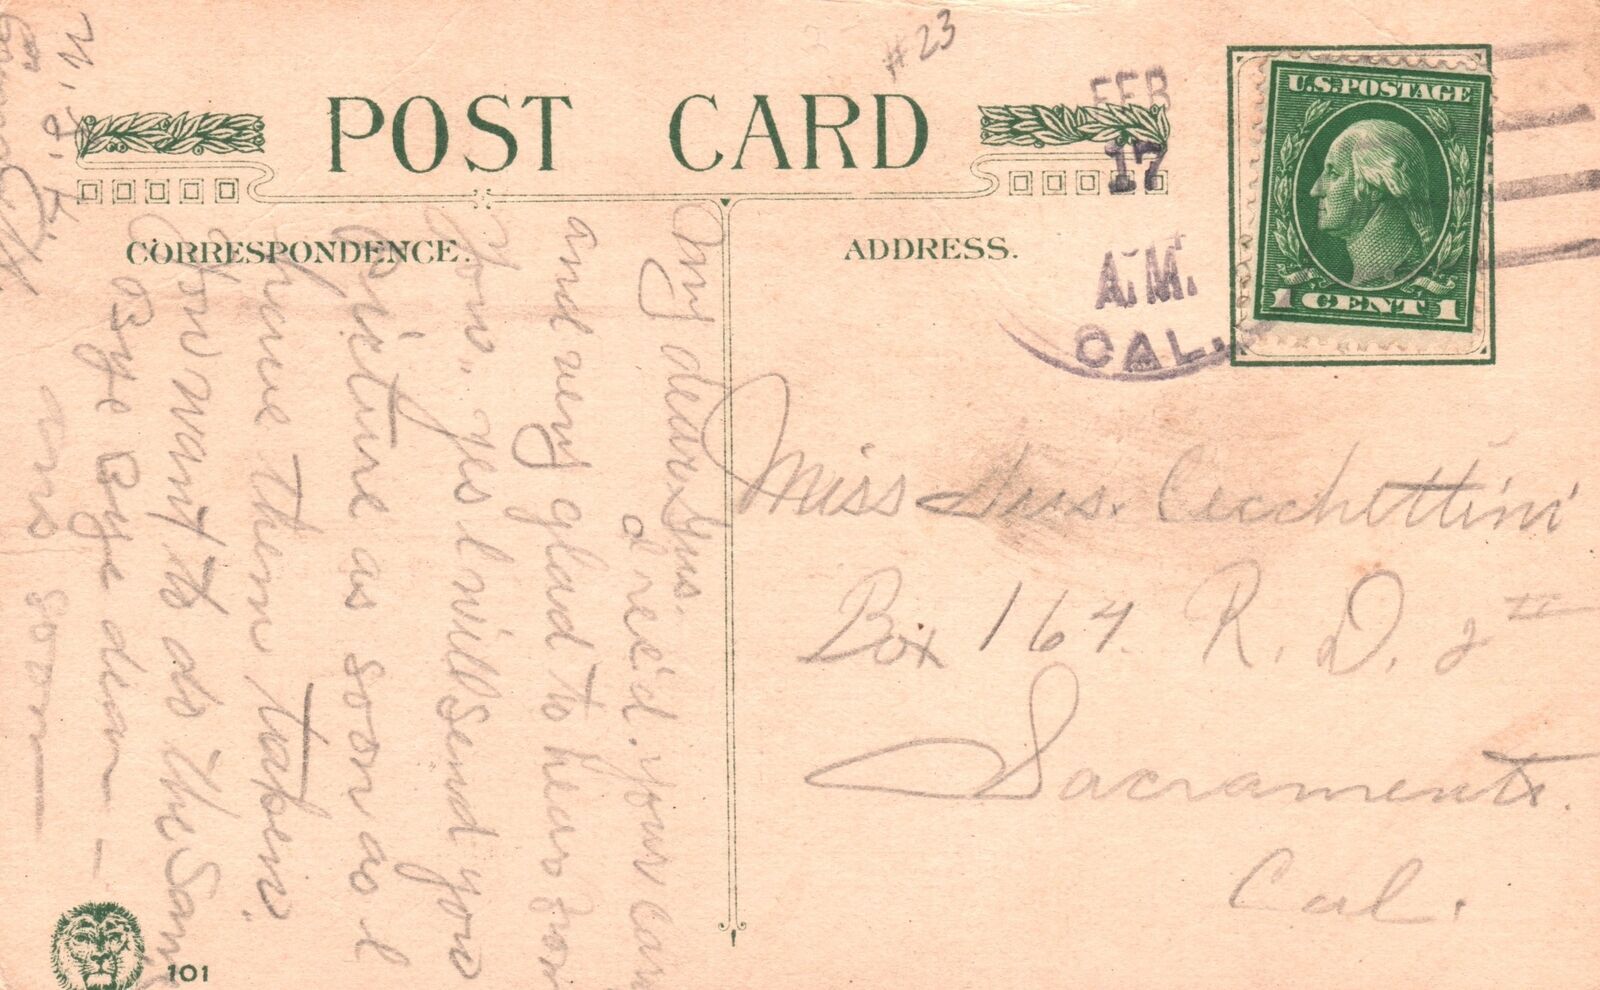 #23
POST CARD
FEB
17
A.M.
CAL.
U.S.POSTAGE
1 CENT 1
CORRESPONDENCE.
ADDRESS.
My dear Gus.
I rec'd. your card
and very glad to hear from
You. Yes I will send you
Picture as soon as I
have them taken.
You want to do the same
Bye Bye dear —
ans soon
Miss Gus. Cecchettini
Box 164. R. D. 2
Sacramento.
Cal.
101